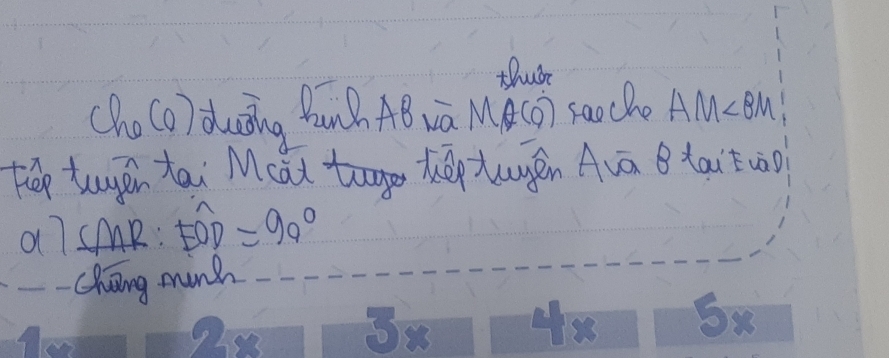 thuộc
Cho (O) đường kính AB và M (O) sao cho AM < BM
tiếp tuyến tại M cắt tiếp tuyến A và B tại E và D
a) CMR: EOD = 90°
chứng minh
1x 2x 3x 4x 5x